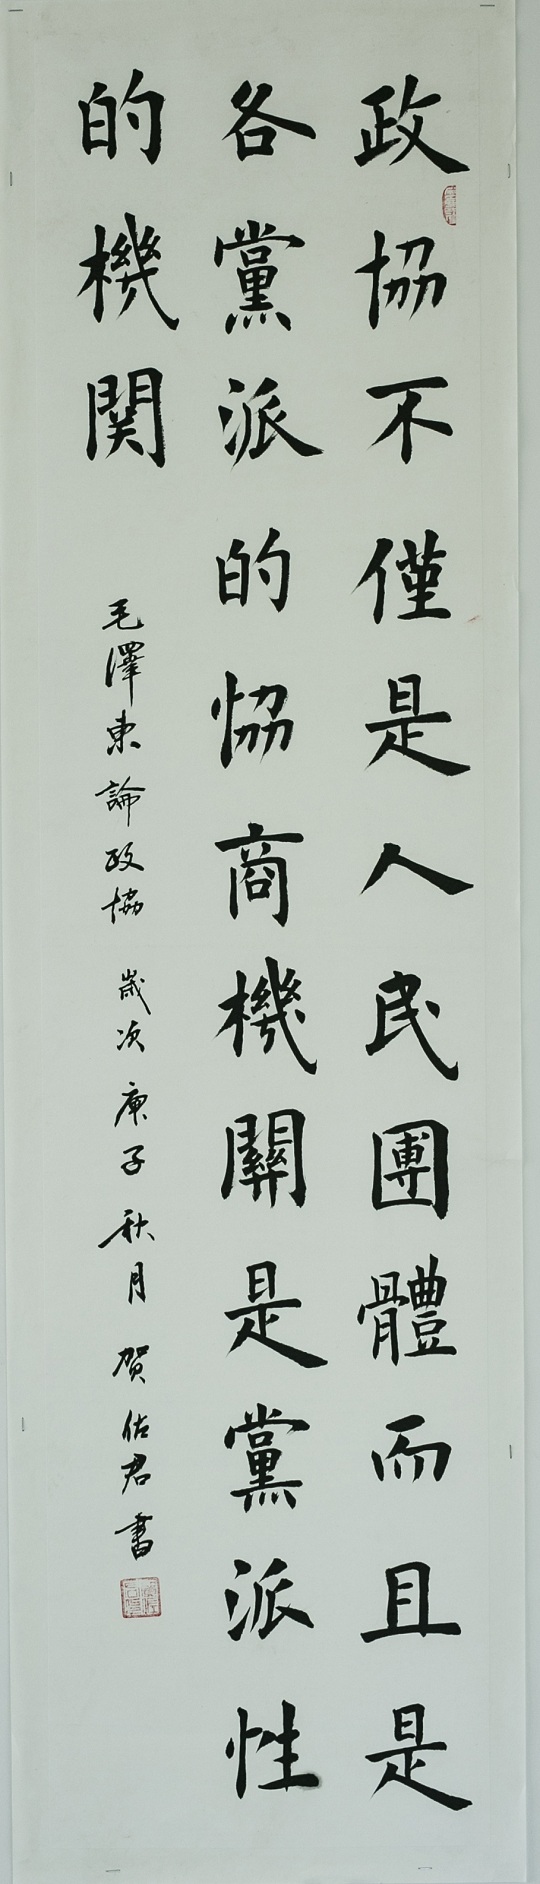 政協不僅是人民團體而且是
各黨派的恊商機關是黨派性
的機関
毛澤東論政協 歲次庚子秋月 贺佑君書